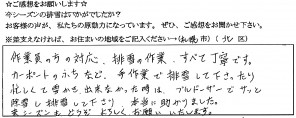 ☆ご感想をお願いします☆
今シーズンの排雪はいかがでしたか？
お客様の声が、私たちの原動力になっています。ぜひ、ご感想をお聞かせ下さい。
※差支えなければ、お住まいの地域をご記入ください→(札幌 市) ( 区)
作業員の方の対応、排雪の作業、すべて丁寧です。
カーポートのふちなど、手作業で排雪して下さったり
忙しくて雪かき出来なかった時は、ブルドーザーでサッと
除雪し排雪して下さり、本当に助かりました。
来シーズンもどうぞよろしくお願いいたします。